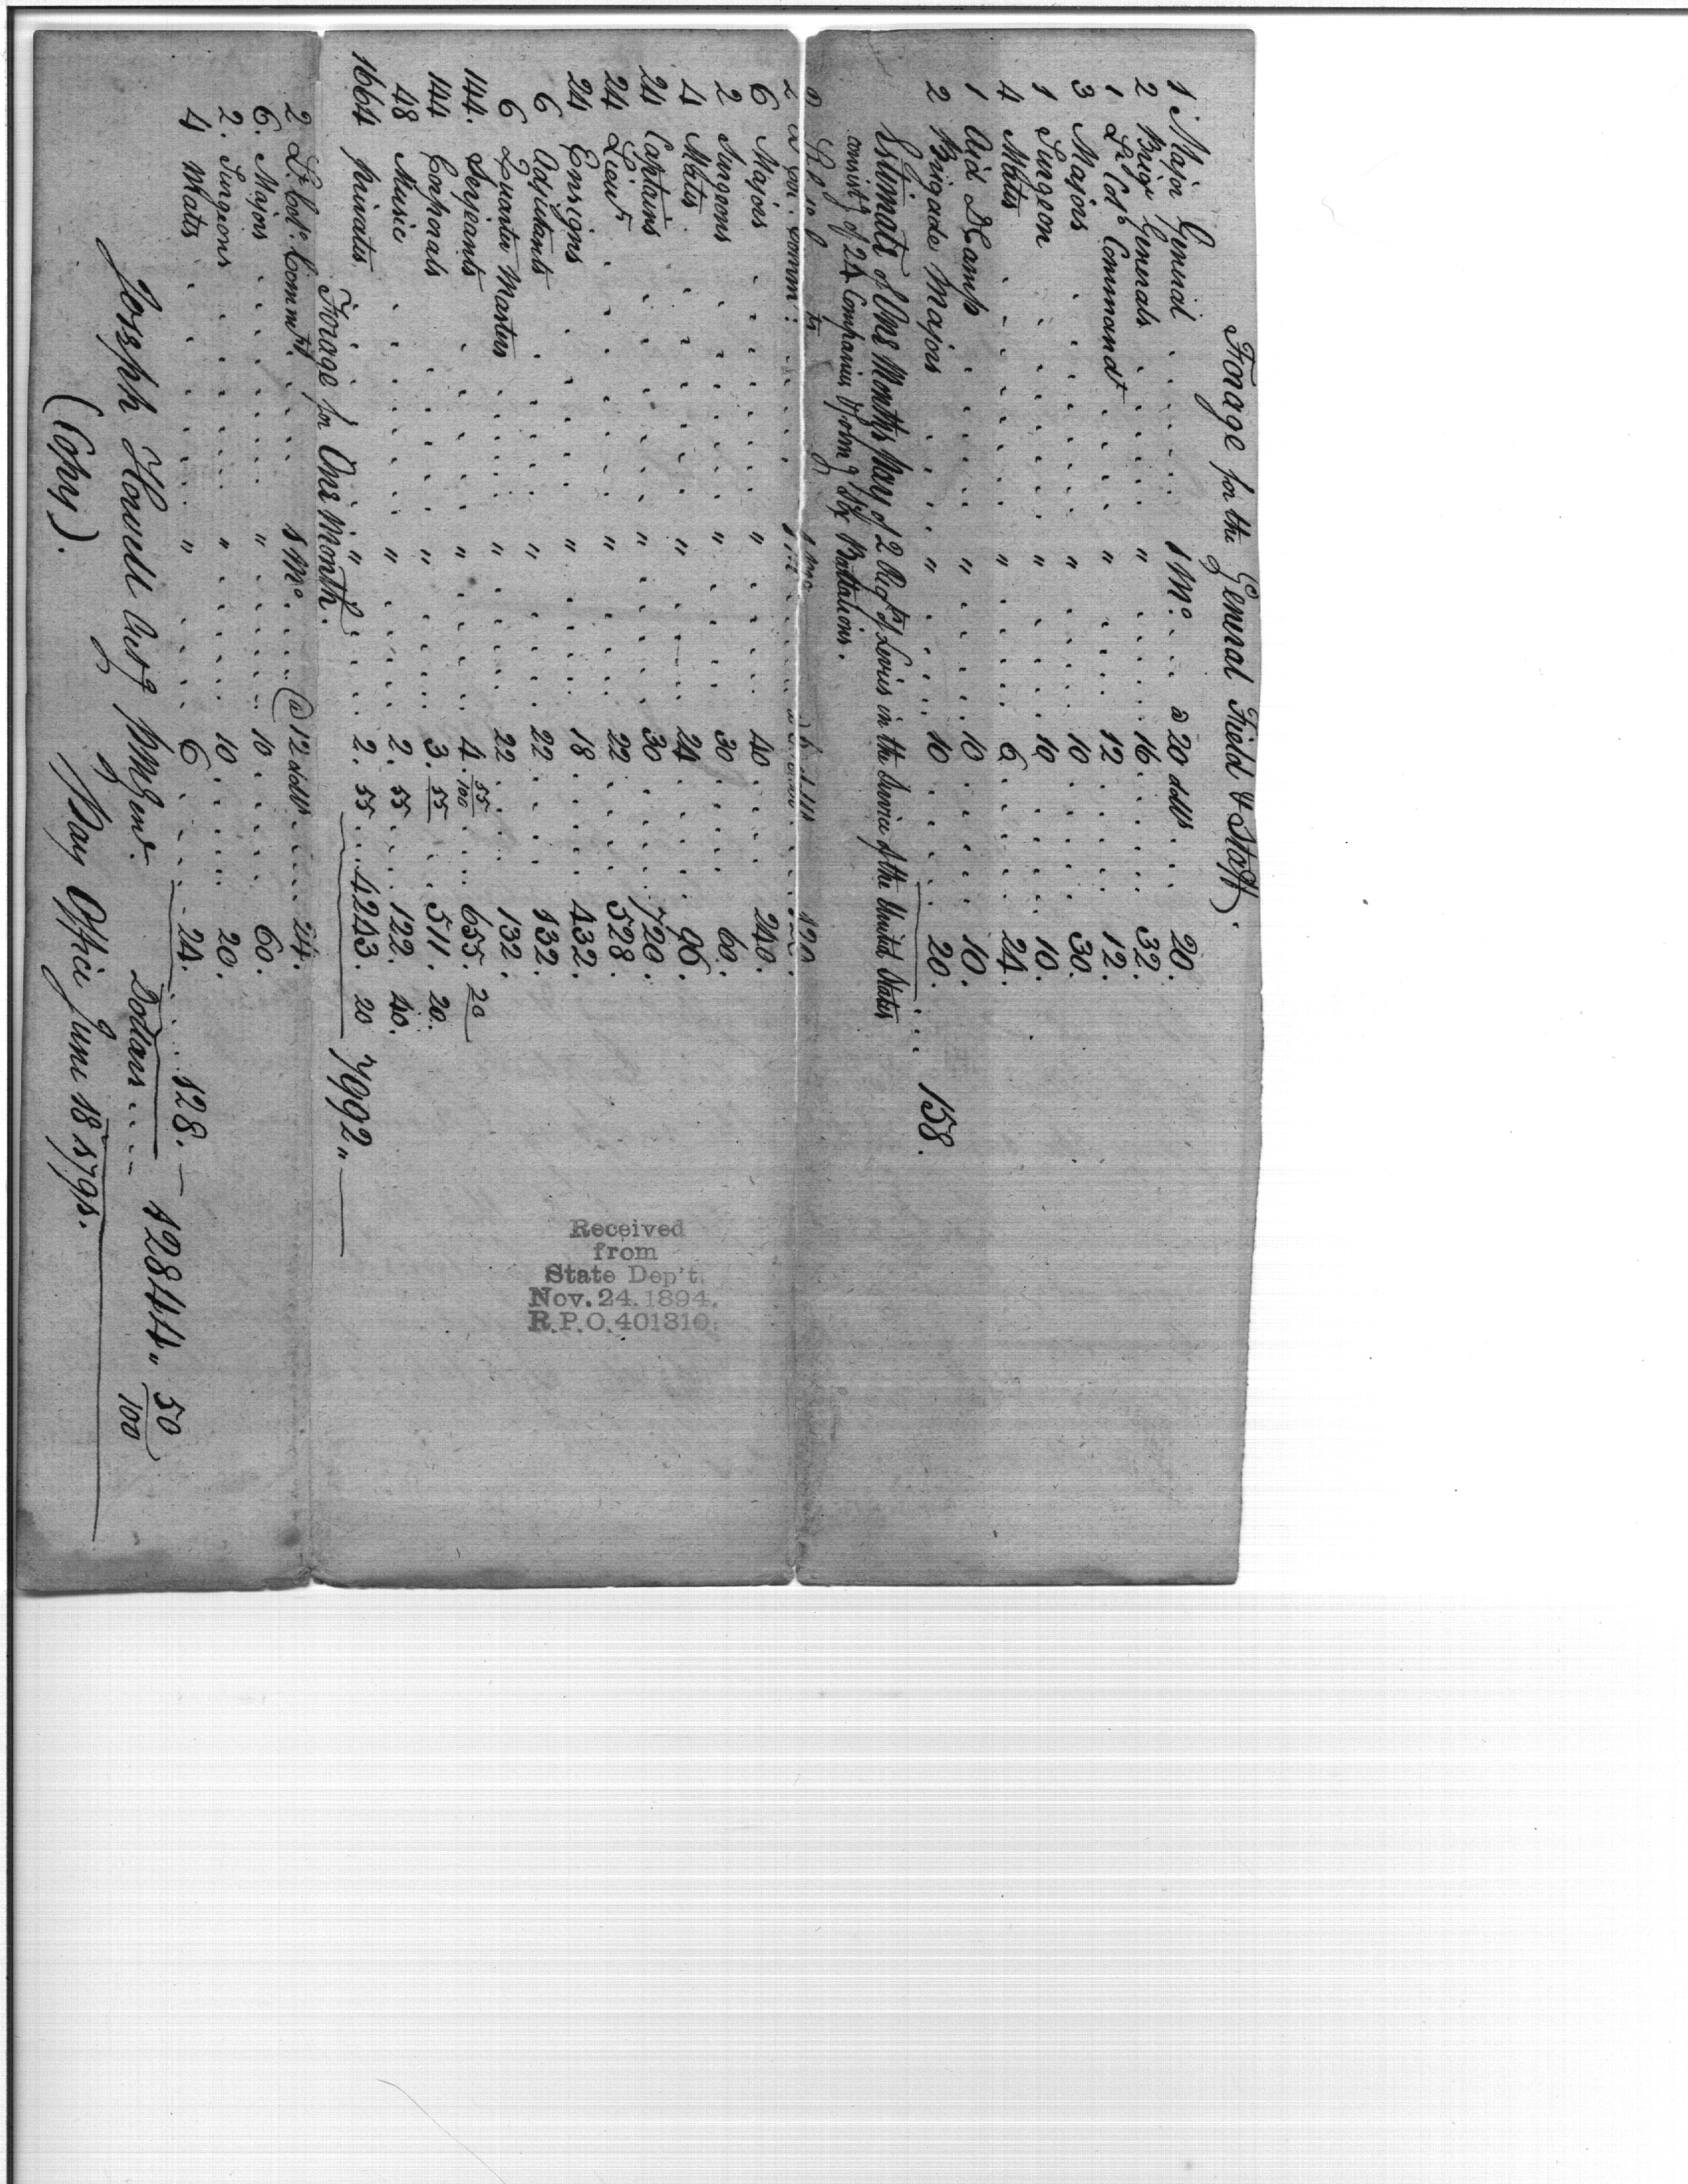 Forage for the General Field & Staff.
1 Major General . . . . . 1 Mo. . . . a 20 dolls . . . 20.
2 Brigr Generals . . . . " . . . . . 16 . . . . . 32.
1 Lt Colo Commandt . . . . " . . . . . 12 . . . . . 12.
3 Majors . . . . . " . . . . . 10 . . . . . 30.
1 Surgeon . . . . . " . . . . . 10 . . . . . 10.
4 Mates . . . . . " . . . . . 6 . . . . . 24.
1 Aid D Camp . . . . . " . . . . . 10 . . . . . 10.
2 Brigade Majors . . . . . " . . . . . 10 . . . . . 20. . . . 158.
Estimate of One Months Pay of 2 Regts of Levies in the Service of the United States
consistg of 24 Companies forming Six Battalions.
2 . . . . . 1 Mo . . . . . 120.
6 Majors . . . . . " . . . . . 40 . . . . . 240.
2 Surgeons . . . . . " . . . . . 30 . . . . . 60.
4 Mates . . . . . " . . . . . 24 . . . . . 96.
24 Captains . . . . . " . . . . . 30 . . . . . 720.
24 Lieuts . . . . . " . . . . . 22 . . . . . 528.
24 Ensigns . . . . . " . . . . . 18 . . . . . 432.
6 Adjutants . . . . . " . . . . . 22 . . . . . 132.
6 Quarter Masters . . . . . " . . . . . 22 . . . . . 132.
144. Serjeants . . . . . " . . . . . 4. 55/100 . . . . . 655. 20
144 Corporals . . . . . " . . . . . 3. 55 . . . . . 511. 20.
48 Music . . . . . " . . . . . 2. 55 . . . . . 122. 40.
1664 privates . . . . . " . . . . . 2. 55 . . . . . 4243. 20 7992 "
Forage for One Month.
2 Lt. Colo. Commdt. . . . . 1 Mo. . . . . @ 12 dolls . . . . . 24.
6. Majors . . . . . " . . . . . 10 . . . . . 60.
2. Surgeons . . . . . " . . . . . 10 . . . . . 20.
4 Mates . . . . . " . . . . . 6 . . . . . 24. . . . 128. —
Dollars . . . . 12844 " 50/100
Joseph Howell Actg P M Genl.
Pay Office June 18 1791.
(Copy).
Received
from
State Dep't.
Nov. 24. 1894.
R.P.O. 401310.